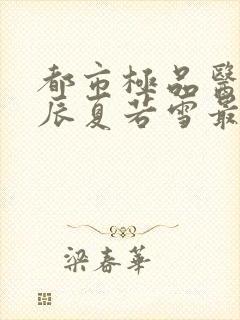 都市極品醫
辰夏若雪最
梁春華